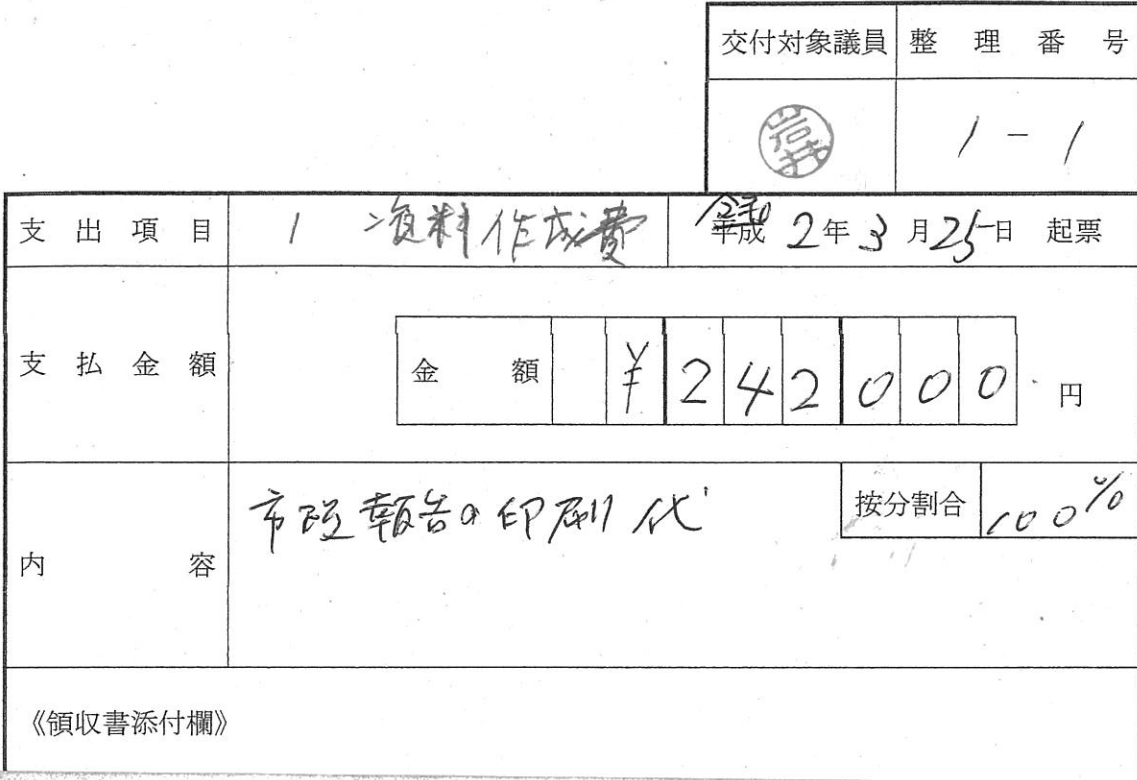 交付対象議員 整理番号
1-1
支出項目 1 資料作成費 令和 平成 2年3月25日 起票
支払金額 金額 ¥242000 円
内容 市政報告の印刷代 按分割合 100%
《領収書添付欄》